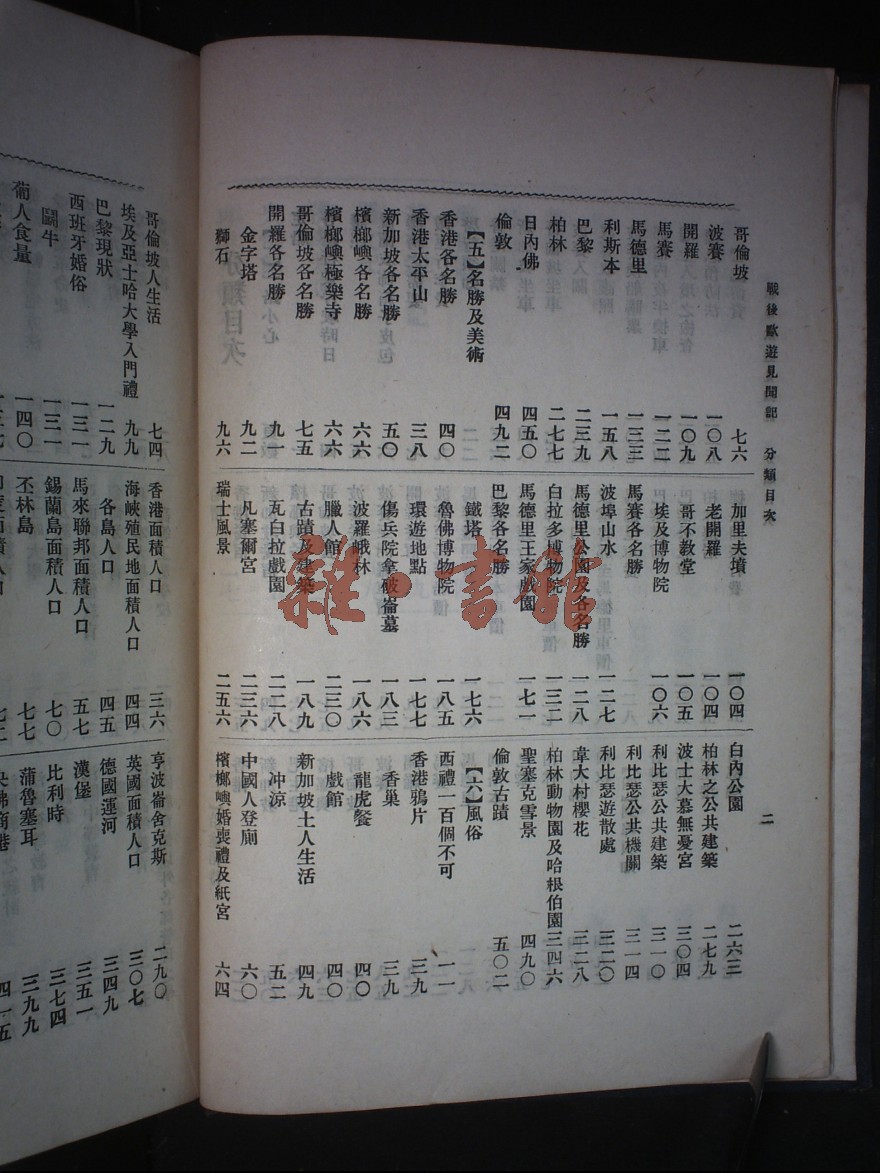 戰後歐遊見聞記 分類目次 二
哥倫坡 七六
波賽 一〇八
開羅 一〇九
馬賽 一二二
馬德里 一三三
利斯本 一五八
巴黎 二三九
柏林 二七七
日內佛 四五〇
倫敦 四九二
【五】名勝及美術
香港各名勝 四〇
香港太平山 三八
新加坡各名勝 五〇
檳榔嶼各名勝 六六
檳榔嶼極樂寺 六六
哥倫坡各名勝 七五
開羅各名勝 九一
金字塔 九二
獅石 九六
加里夫墳 一〇四
老開羅 一〇四
哥不教堂 一〇五
埃及博物院 一〇六
馬賽各名勝
波埠山水 一二七
馬德里公園及各名勝 一二八
白拉多博物院 一三二
馬德里王家戲園 一七一
巴黎各名勝
鐵塔 一七六
魯佛博物院 一八五
環遊地點 一七七
傷兵院拿破崙墓 一八三
波羅峨林 一八六
臘人館 二三〇
古蹟及建築 一八九
瓦白拉戲園 二二八
凡塞爾宮 二三六
瑞士風景 二五六
白內公園 二六三
柏林之公共建築 二七九
波士大慕無憂宮 三〇四
利比瑟公共建築 三一〇
利比瑟公共機關 三一四
利比瑟遊散處 三二〇
韋大村櫻花 三二八
柏林動物園及哈根伯園 三四六
聖塞克雪景 四九〇
倫敦古蹟 五〇二
【六】風俗
西禮一百個不可 一一
香港鴉片 三九
香巢 三九
龍虎餐 四〇
戲館 四〇
新加坡土人生活 四九
冲涼 五二
中國人登廁 六〇
檳榔嶼婚喪禮及紙宮 六四
哥倫坡人生活 七四
埃及亞士哈大學入門禮 九九
巴黎現狀 一二九
西班牙婚俗 一三一
鬭牛 一三一
葡人食量 一四〇
香港面積人口 三六
海峽殖民地面積人口 四四
各島人口 四五
馬來聯邦面積人口 五七
錫蘭島面積人口 七〇
丕林島 七七
亨波崙舍克斯 二九〇
英國面積人口 三〇七
德國運河 三四九
漢堡 三五一
比利時 三七四
蒲魯塞耳 三九九
雜·書館